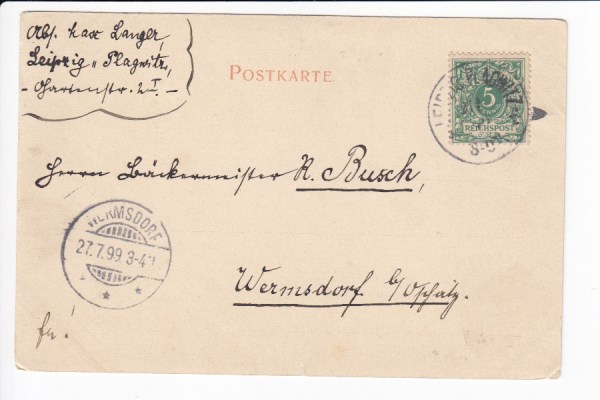 Abs. Max Langer,
Leipzig-Plagwitz,
- Gartenstr. 2 I. -
POSTKARTE.
5
REICHSPOST
PLAGWITZ
Herrn Bäckermeister R. Busch,
WERMSDORF
27.7.99. 3-4
Wermsdorf b/Oschatz.
fr!